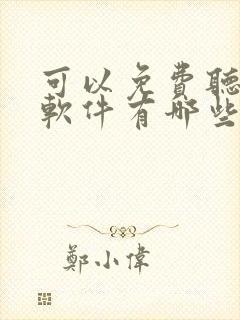 可以免費聽
軟件有哪些
鄭小偉